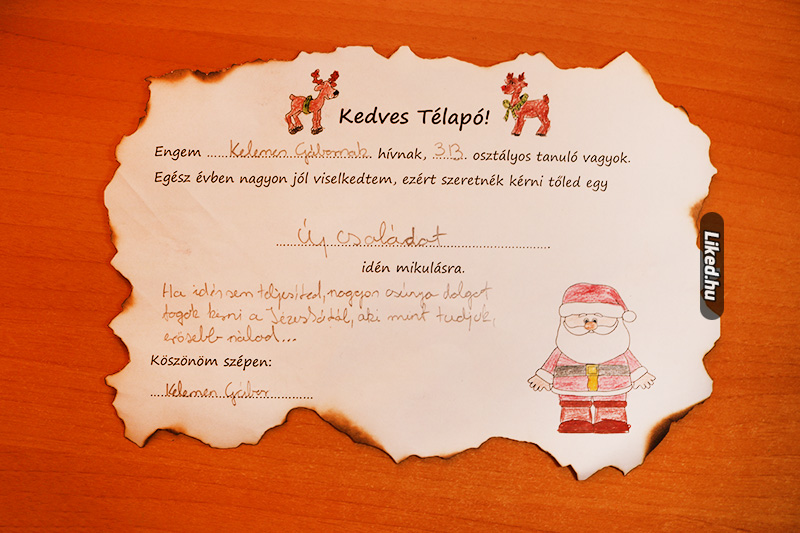 Kedves Télapó!
Engem Kelemen Gábornak hívnak, 3B osztályos tanuló vagyok.
Egész évben nagyon jól viselkedtem, ezért szeretnék kérni tőled egy
Új családot
idén mikulásra.
Ha idén sem teljesíted, nagyon csúnya dolgot
fogok kérni a Jézuskától, aki mint tudjuk,
erősebb nálad...
Köszönöm szépen:
Kelemen Gábor
Liked.hu